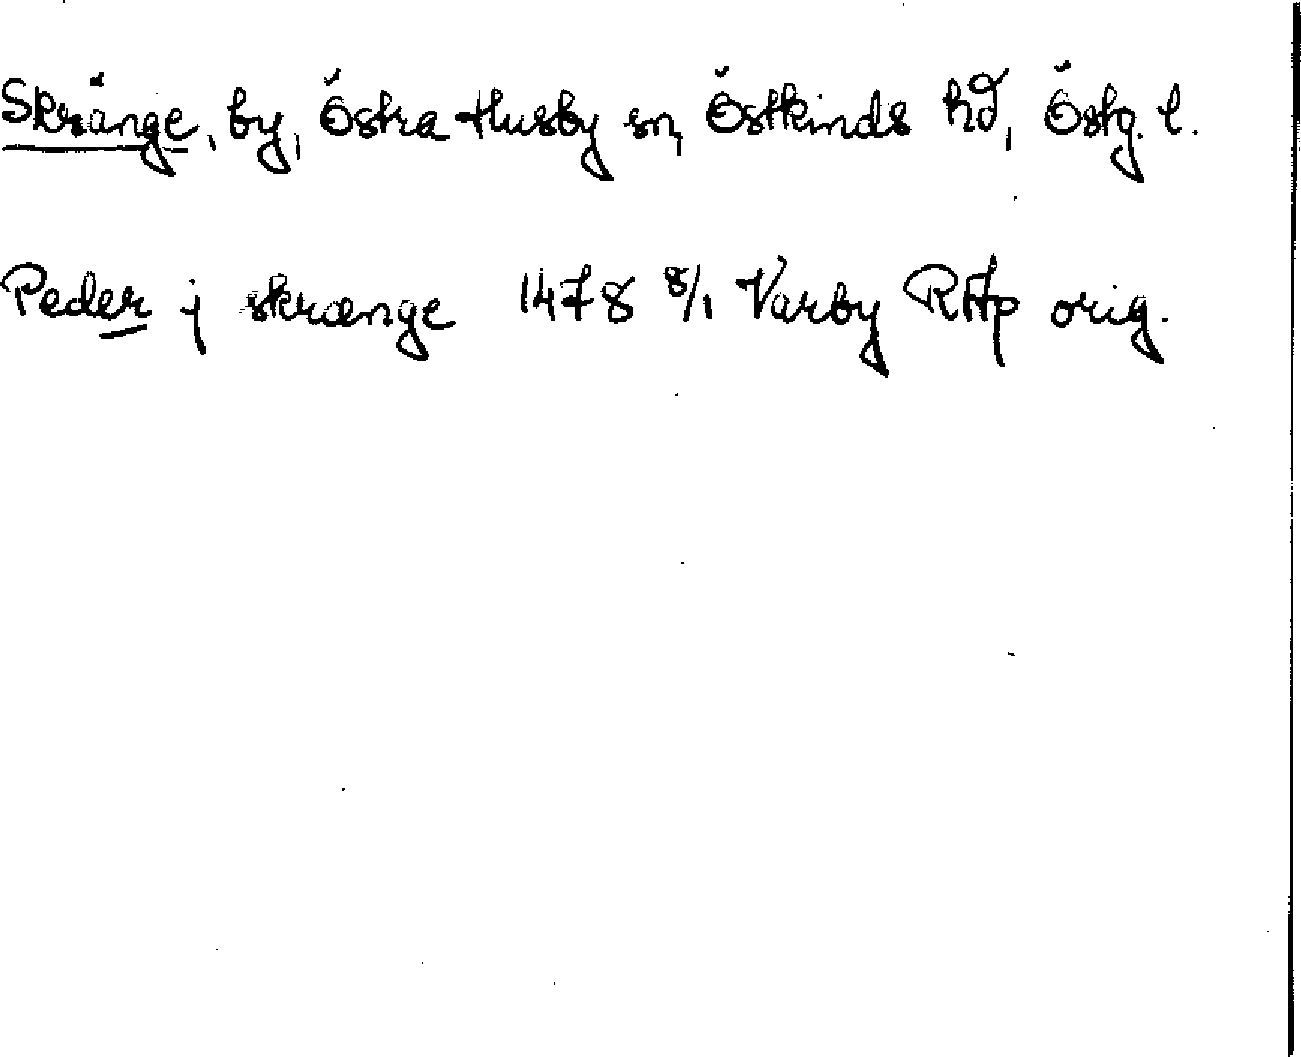 Skränge, by, Östra Husby sn, Östkinds hd, Östg. l.
Peder j skrænge 1478 8/1 Varby RAp orig.